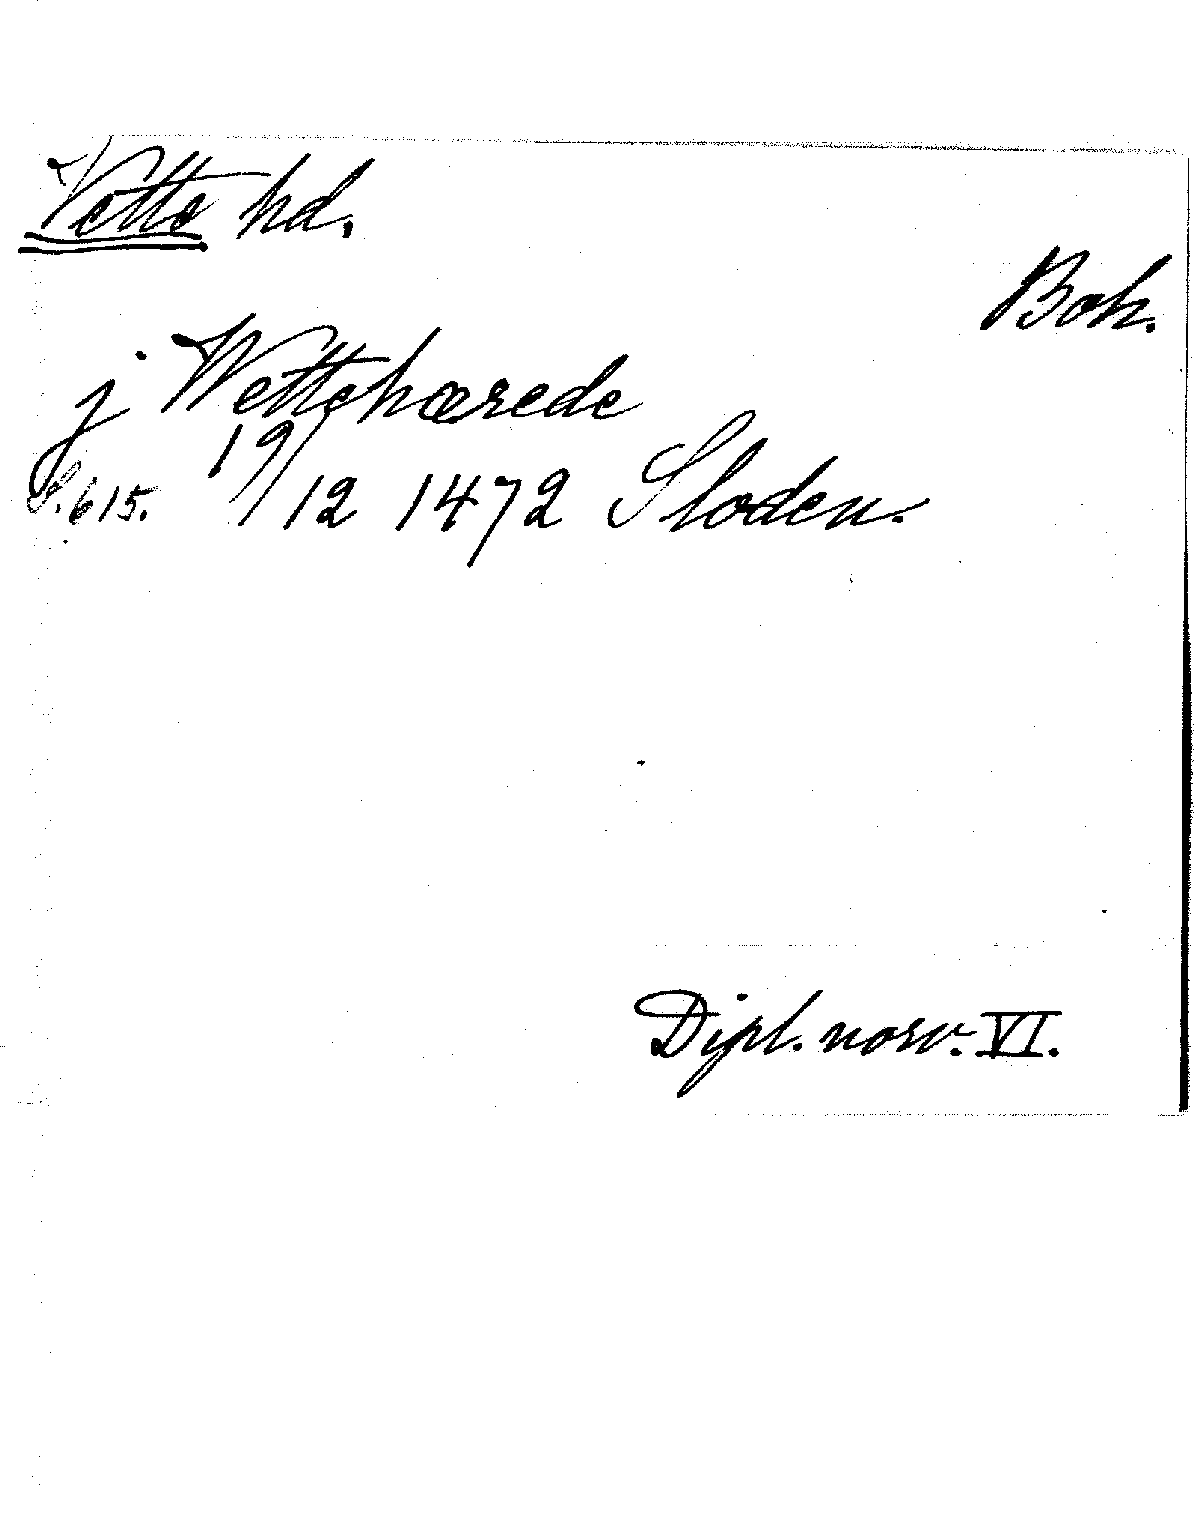 Vette hd.
Boh.
j Wettehærede
S. 615. 19/12 1472 Sloden.
Dipl. norv. VI.